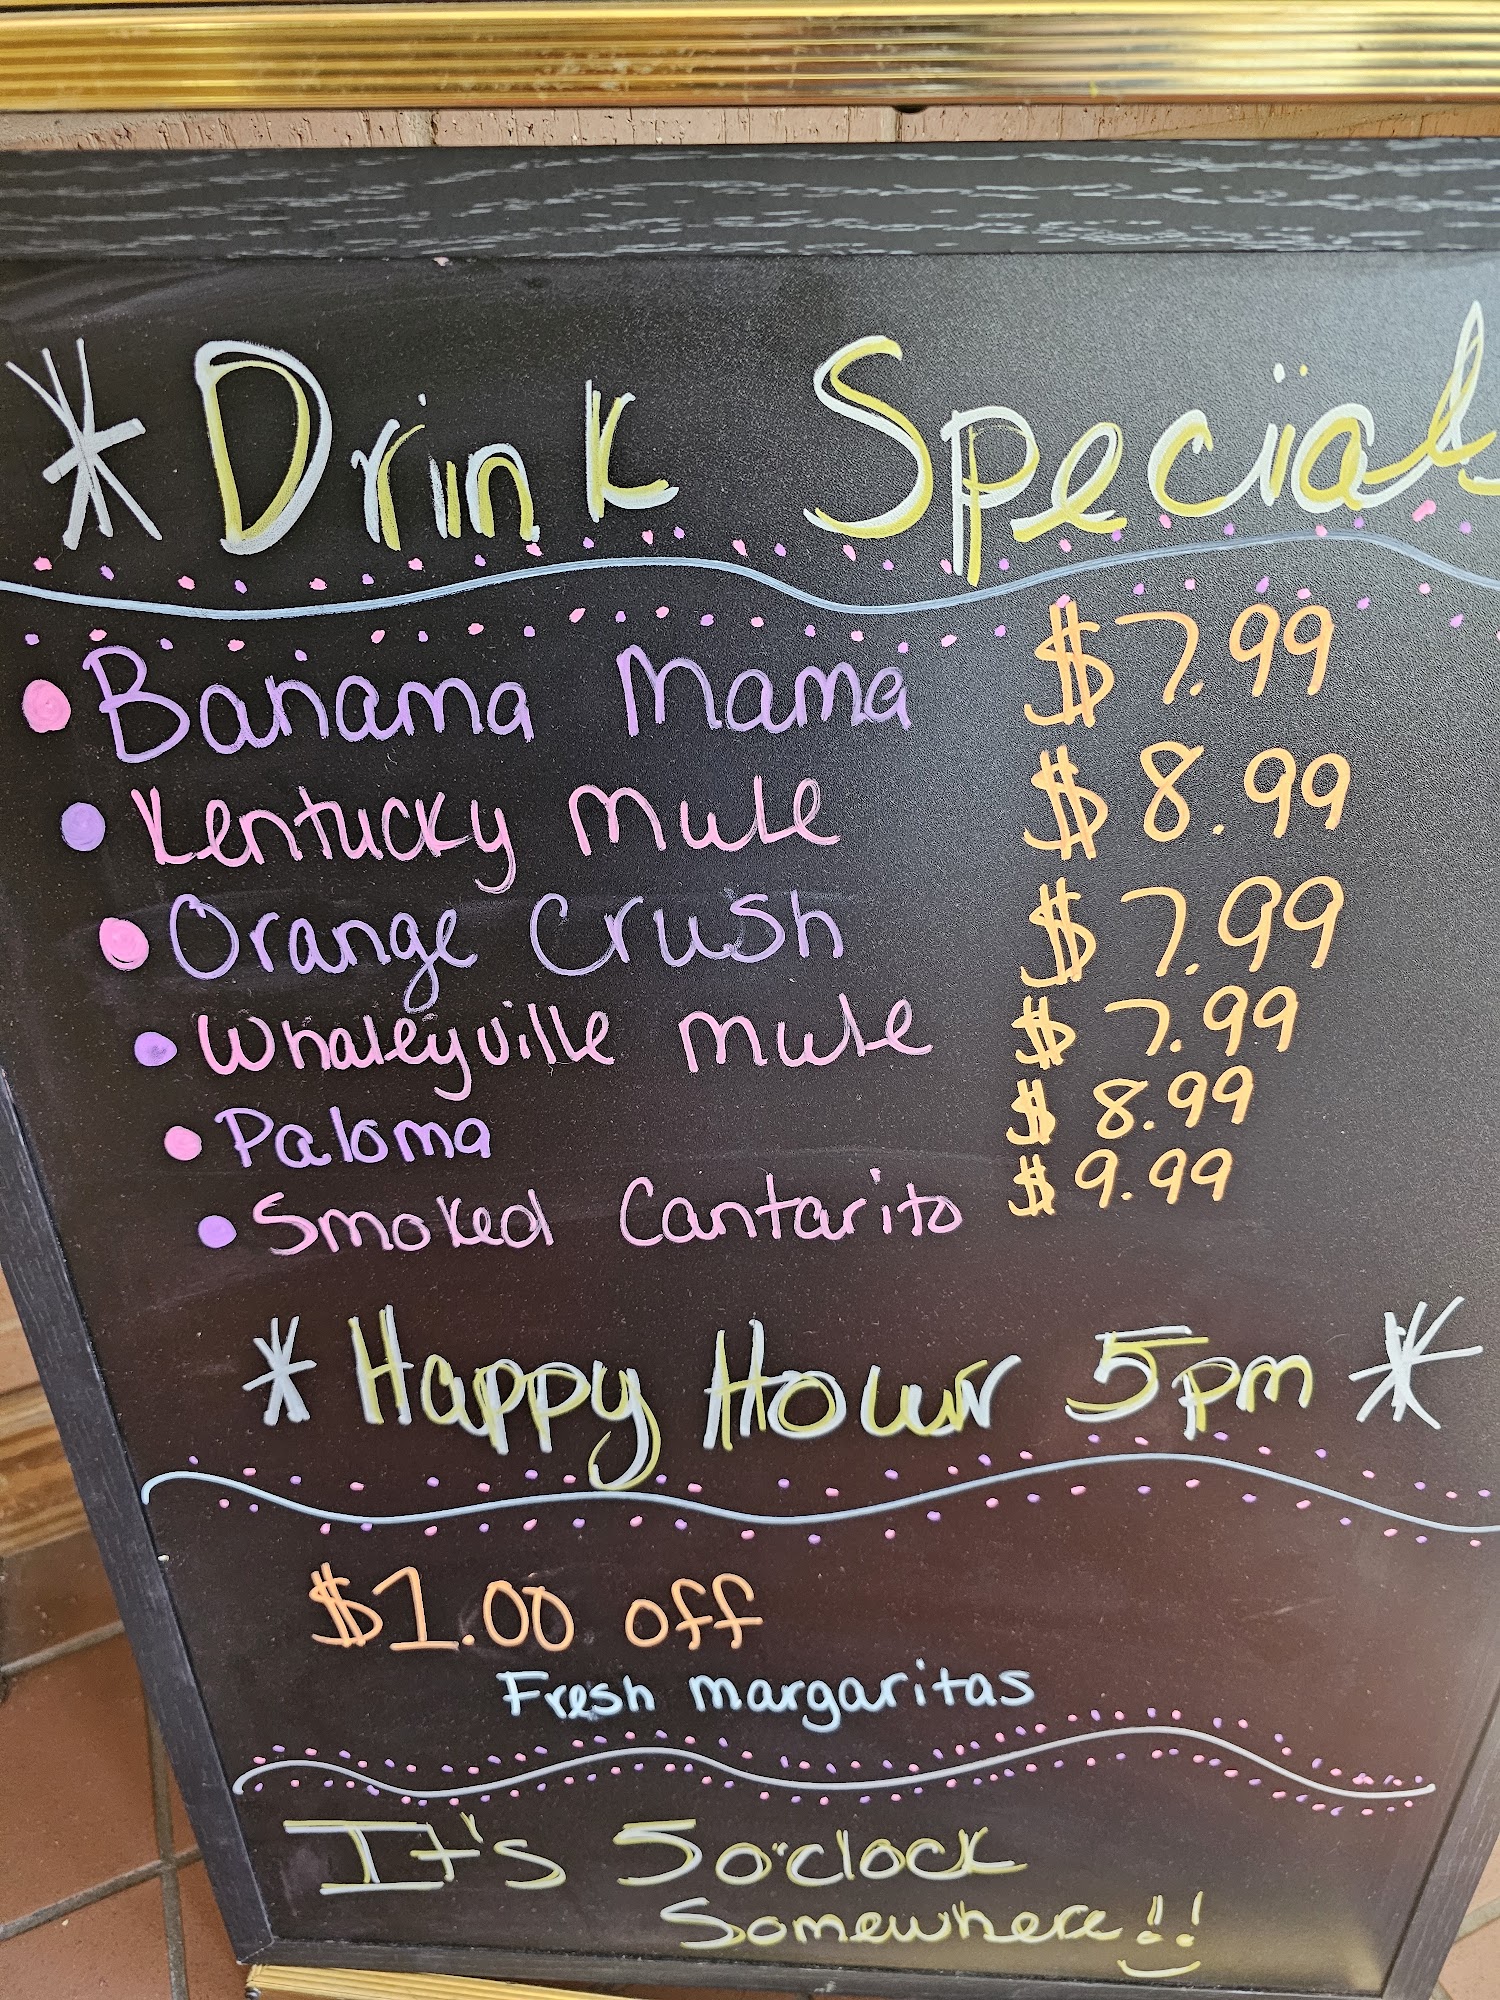 *Drink Specials
Bahama Mama $7.99
Kentucky Mule $8.99
Orange Crush $7.99
Whaleyville Mule $7.99
Paloma $8.99
Smoked Cantarito $9.99
*Happy Hour 5pm*
$1.00 off
Fresh margaritas
It's 5 o'clock
Somewhere!!